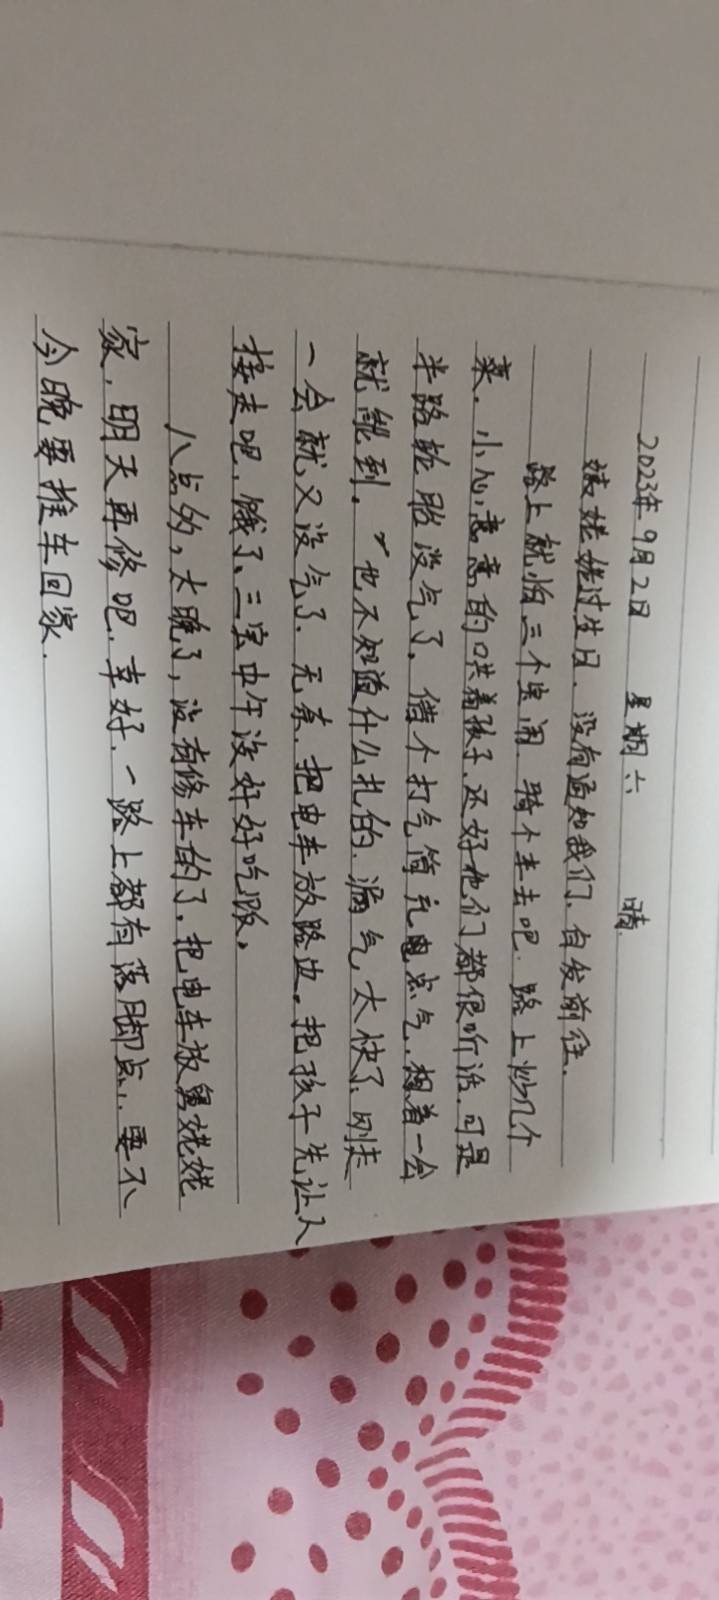 2023年9月2日 星期六 晴.
姨姥姥过生日, 没有通知我们, 自发前往.
路上就怕三个宝闹, 骑个车去吧. 路上炒几个
菜, 小心意意的哄着孩子, 还好他们都很听话. 可是
半路轮胎没气了, 借个打气筒充电点气, 想着一会
就能到. 也不知道什么扎的, 漏气太快了, 刚走
一会就又没气了. 无奈, 把电车放路边, 把孩子先让人
接走吧, 饿了, 三宝中午没好好吃饭.
八点多, 太晚了, 没有修车的了, 把电车放舅姥姥
家, 明天再修吧, 幸好, 一路上都有落脚点, 要不
今晚要推车回家.